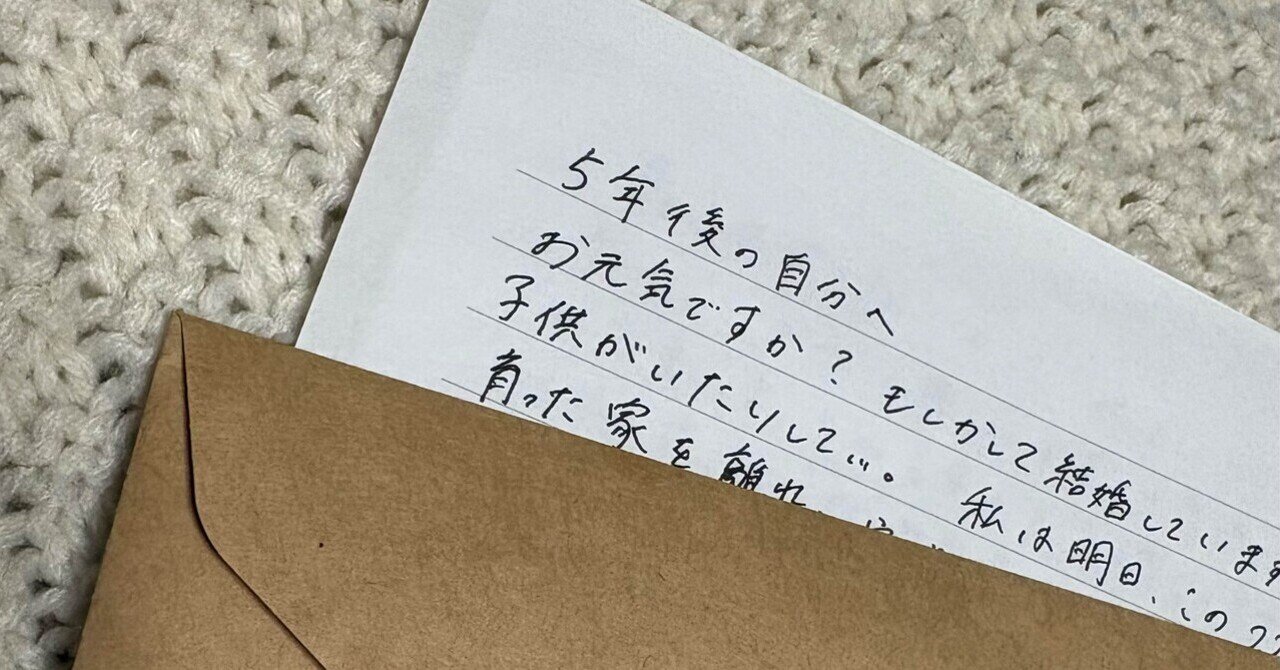 5年後の自分へ
お元気ですか？もしかして結婚しています
子供がいたりして…。私は明日、この
育った家を離れ、